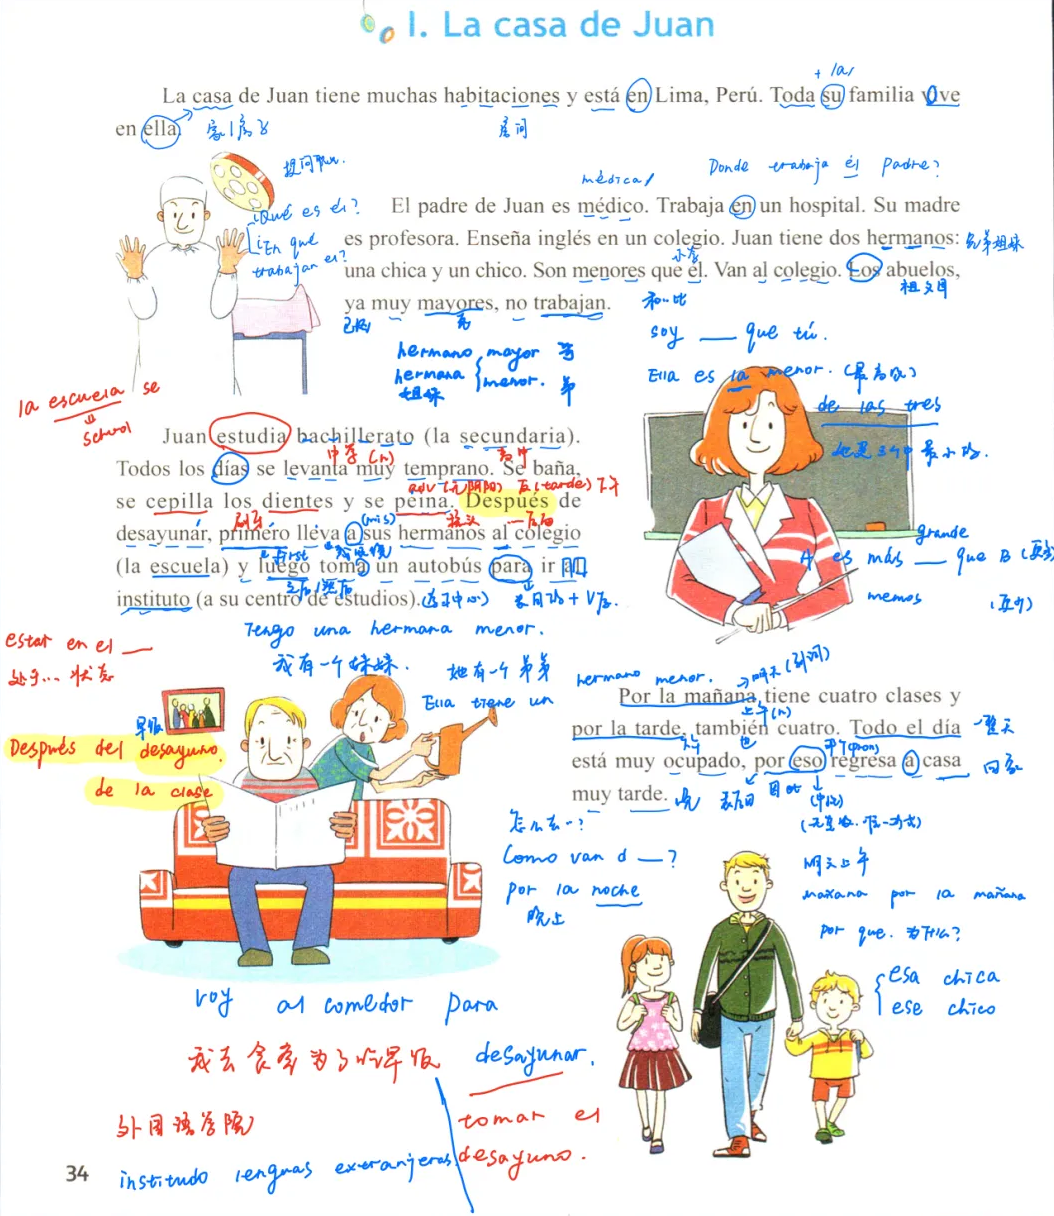 I. La casa de Juan
+ la
La casa de Juan tiene muchas habitaciones y está en Lima, Perú. Toda su familia vive
en ella.
房间
Donde trabaja él padre?
médica
¿Qué es él?
¿En qué
trabajan él?
El padre de Juan es médico. Trabaja en un hospital. Su madre
es profesora. Enseña inglés en un colegio. Juan tiene dos hermanos: 兄弟姐妹
una chica y un chico. Son menores que él. Van al colegio. Los abuelos,
小学
祖父母
ya muy mayores, no trabajan.
和..比
soy ___ que tú.
hermano mayor 哥
hermana menor. 弟
姐妹
Ella es la menor. (最高级)
de las tres
她是3个中最小的.
la escuela se
school
Juan estudia bachillerato (la secundaria).
中学 (n)
高中
Todos los días se levanta muy temprano. Se baña,
(tarde) 下午
se cepilla los dientes y se peina. Después de
刷牙
梳头
desayunar, primero lleva a sus hermanos al colegio
(mis)
first
(la escuela) y luego toma un autobús para ir al
instituto (a su centro de estudios).
grande
A es más ___ que B
memos
Tengo una hermana menor.
我有一个妹妹.
estar en el ___
处于... 状态
她有一个弟弟
Ella tiene un hermano menor.
Por la mañana tiene cuatro clases y
上午 (n)
por la tarde, también cuatro. Todo el día 一整天
下午
也
está muy ocupado, por eso regresa a casa 回家
muy tarde. 晚
因此
早饭
Después del desayuno.
de la clase
怎么去..?
Como van d ___?
por la noche
晚上
明天上午
mañana por la mañana
por que. 为什么?
esa chica
ese chico
voy al comedor para
desayunar.
我去食堂为了吃早饭
tomar el
desayuno.
外国语学院
institudo lenguas extranjeras
34